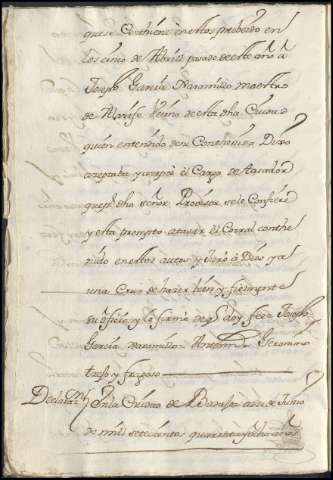 que se Contiene en el Auto probeido en
los cinco de Abril pasado de este año a
Joseph Garcia Naramillo maestro
de Alarife Vezino de esta dha Ciudad
quien entendido de su Conthenido Dixo
azeptaba y azepto el Cargo de Apreciador
que por dho señor Provisor se le Confiere
y esta prompto a tasar el Corral conthe
nido en estos autos y Juro a Dios y a
una Cruz de hazer bien y fielmente
su oficio y lo firmo de q doy fee Joseph
Garcia Naramillo Antonio Geronimo
Declaraz En la Ciudad de de Junio
de mil setecientos quarenta y ocho años